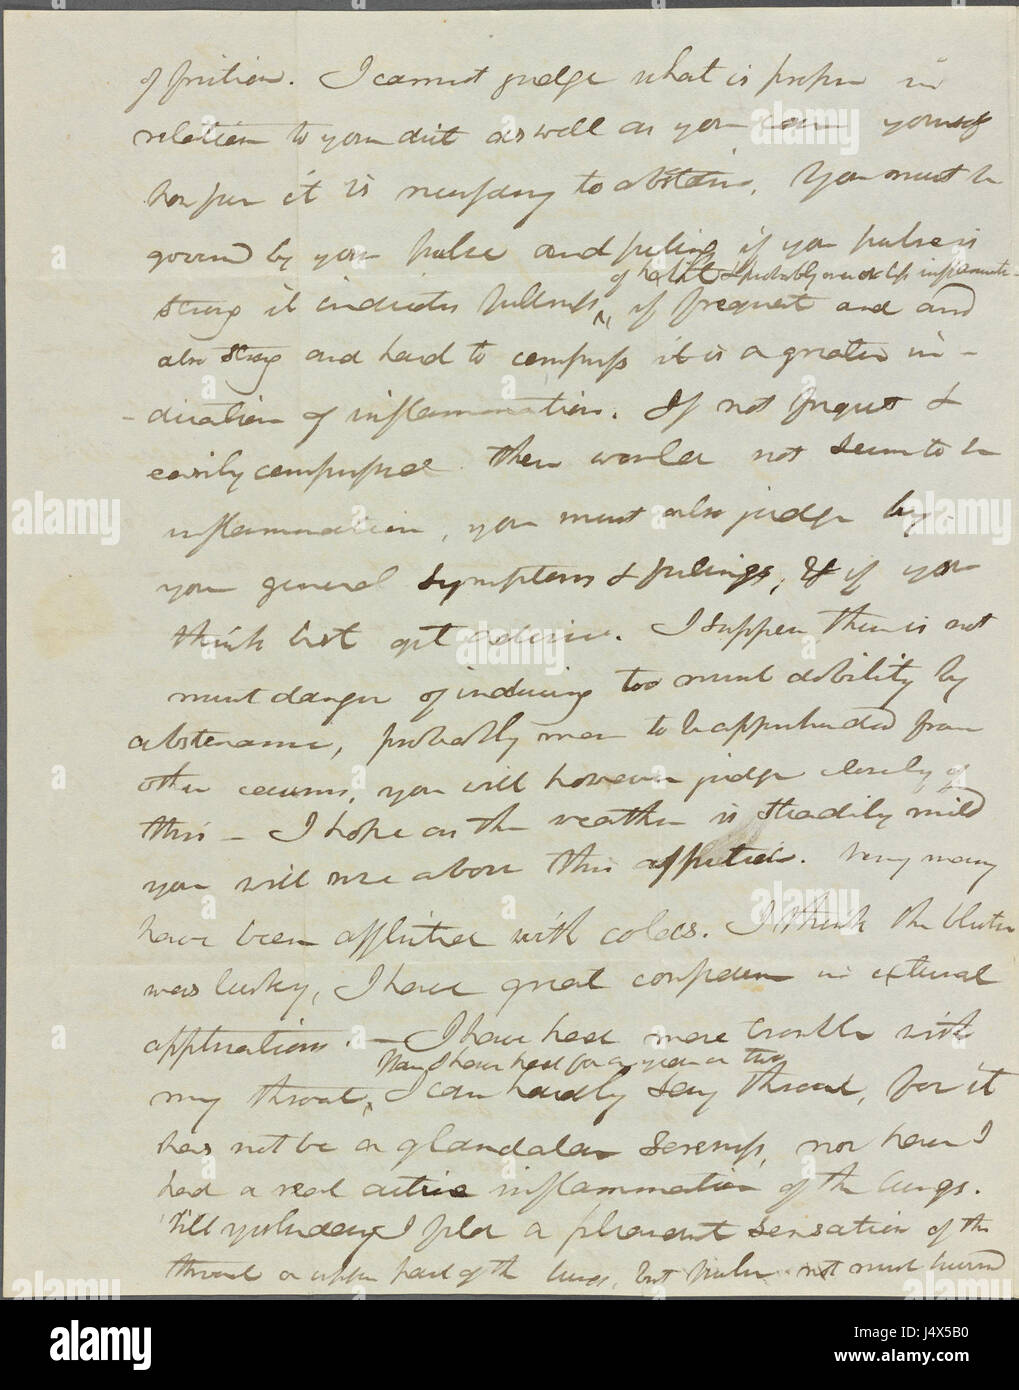 of friction. I cannot judge what is proper in
relation to your diet as well as you can yourself
how far it is necessary to abstain. You must be
governd by your pulse and feeling if your pulse is
strong it indicates fullness, if frequent and and
of habit & probably more or less inflammation
also strong and hard to compress it is a greater in-
-dication of inflammation. If not frequent &
easily compressed there would not seem to be
inflammation, you must also judge by
your general symptoms & feelings, & if you
think best get advice. I suppose there is not
much danger of inducing too much debility by
abstenance, probably more to be apprehended from
other causes, you will however judge closely of
this - I hope as the weather is steadily mild
you will rise above this affection. Very many
have been afflicted with colds. I think the blister
was lucky, I have great confidence in external
applications. - I have had more trouble with
my throat, I can hardly say throat, for it
than I have had for a year or two
has not be a glandular soreness, nor have I
had a real active inflammation of the lungs.
till yesterday I felt a pleasant sensation of the
throat or upper part of the lungs, but pulse not much hurried
alamy
a
www.alamy.com
Image ID: J4X5B0